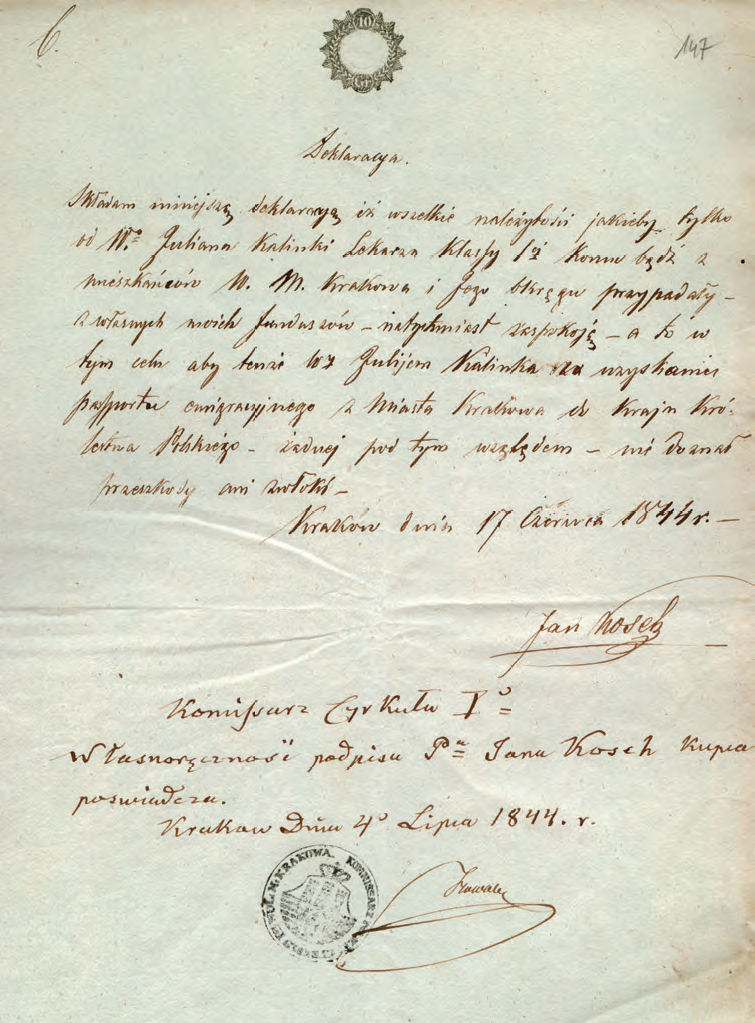 6.
147
10
Gr
Deklaracya.
Składam niniejszą deklaracyą iż wszelkie należytości jakieby tylko
od W.º Juliana Kalinki Lekarza Klassy 1éj komu bądź z
mieszkańców W. M. Krakowa i Jego Okręgu przypadały –
z własnych moich funduszów – natychmiast zaspokoję – a to w
tym celu aby tenże Wy Julijan Kalinka na uzyskanie
passportu emigracyjnego z Miasta Krakowa do Kraju Kró-
lestwa Polskiego – żadnej pod tym względem – nie doznał
przeszkody ani zwłoki –
Kraków dnia 17 Czerwca 1844 r. –
Jan Kosch
Komissarz Cyrkułu Iº
Własnoręczność podpisu Pª Jana Kosch Kupca
poswiadcza.
Krakow Dnia 4º Lipca 1844. r.
M. KRAKOWA. KOMMISSARZ